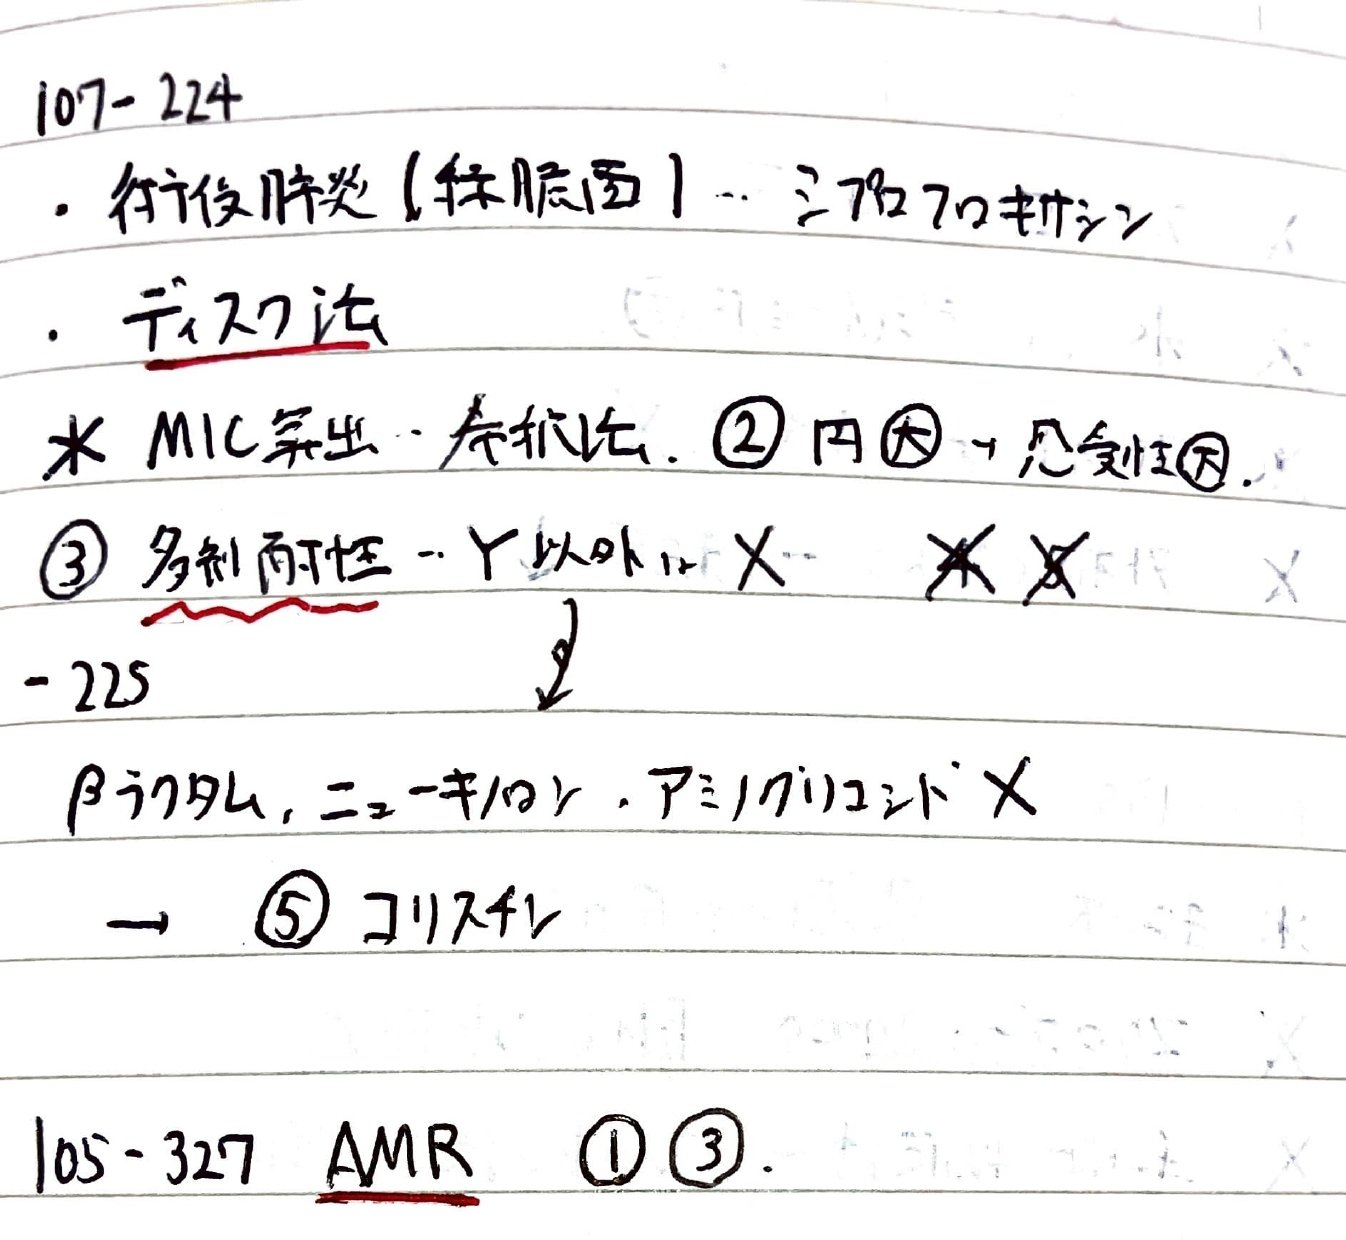 107-224
・術後肺炎(緑膿菌)… シプロフロキサシン
・ディスク法
* MIC算出‥希釈法. ② 円大→感受性大.
③ 多剤耐性‥Y以外は X 4 5
-225
βラクタム, ニューキノロン.アミノグリコシド X
→ ⑤ コリスチン
105-327 AMR ① ③.